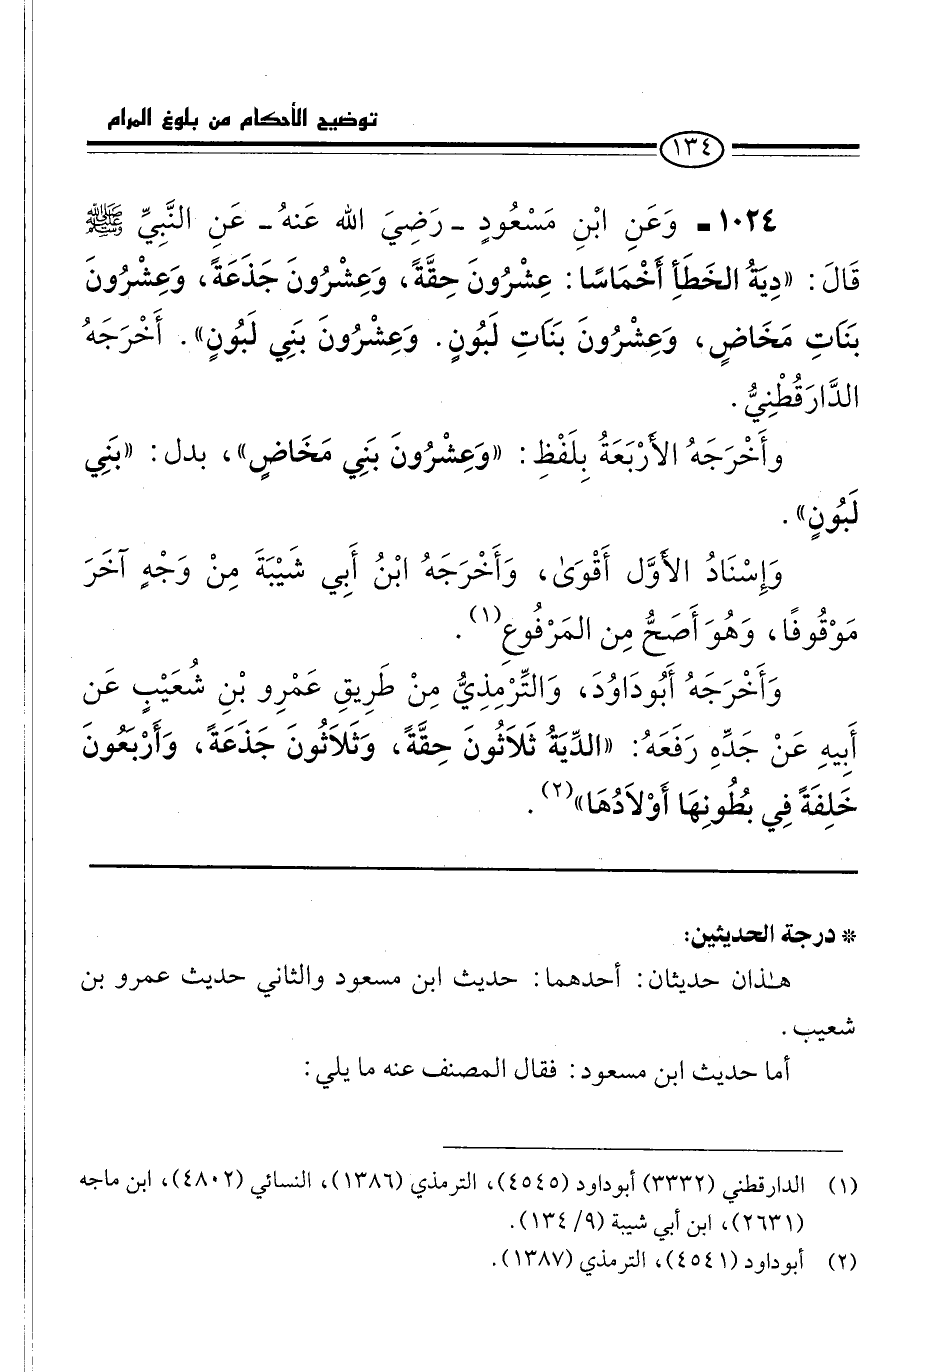 توضيح الأحكام من بلوغ المرام
١٣٤
١٠٢٤ - وَعَنِ ابْنِ مَسْعُودٍ - رَضِيَ الله عَنهُ - عَنِ النَّبِيِّ ﷺ
قَالَ: «دِيَةُ الخَطَأِ أَخْمَاسًا: عِشْرُونَ حِقَّةً، وَعِشْرُونَ جَذَعَةً، وَعِشْرُونَ
بَنَاتِ مَخَاضٍ، وَعِشْرُونَ بَنَاتِ لَبُونٍ. وَعِشْرُونَ بَنِي لَبُونٍ». أَخْرَجَهُ
الدَّارَقُطْنِيُّ.
وأَخْرَجَهُ الأَرْبَعَةُ بِلَفْظِ: «وَعِشْرُونَ بَنِي مَخَاضٍ»، بدل: «بَنِي
لَبُونٍ».
وَإِسْنَادُ الأَوَّل أَقْوَىٰ، وَأَخْرَجَهُ ابْنُ أَبِي شَيْبَةَ مِنْ وَجْهٍ آخَرَ
مَوْقُوفًا، وَهُوَ أَصَحُّ مِن المَرْفُوعِ(١).
وَأَخْرَجَهُ أَبُودَاوُدَ، وَالتِّرْمِذِيُّ مِنْ طَرِيقِ عَمْرِو بْنِ شُعَيْبٍ عَن
أَبِيهِ عَنْ جَدِّهِ رَفَعَهُ: «الدِّيَةُ ثَلَاثُونَ حِقَّةً، وَثَلَاثُونَ جَذَعَةً، وَأَرْبَعُونَ
خَلِفَةً فِي بُطُونِهَا أَوْلَادُهَا»(٢).
* درجة الحديثين:
هـٰذان حديثان: أحدهما: حديث ابن مسعود والثاني حديث عمرو بن
شعيب.
أما حديث ابن مسعود: فقال المصنف عنه ما يلي:
(١) الدارقطني (٣٣٣٢) أبوداود (٤٥٤٥)، الترمذي (١٣٨٦)، النسائي (٤٨٠٢)، ابن ماجه
(٢٦٣١)، ابن أبي شيبة (٩/ ١٣٤).
(٢) أبوداود (٤٥٤١)، الترمذي (١٣٨٧).